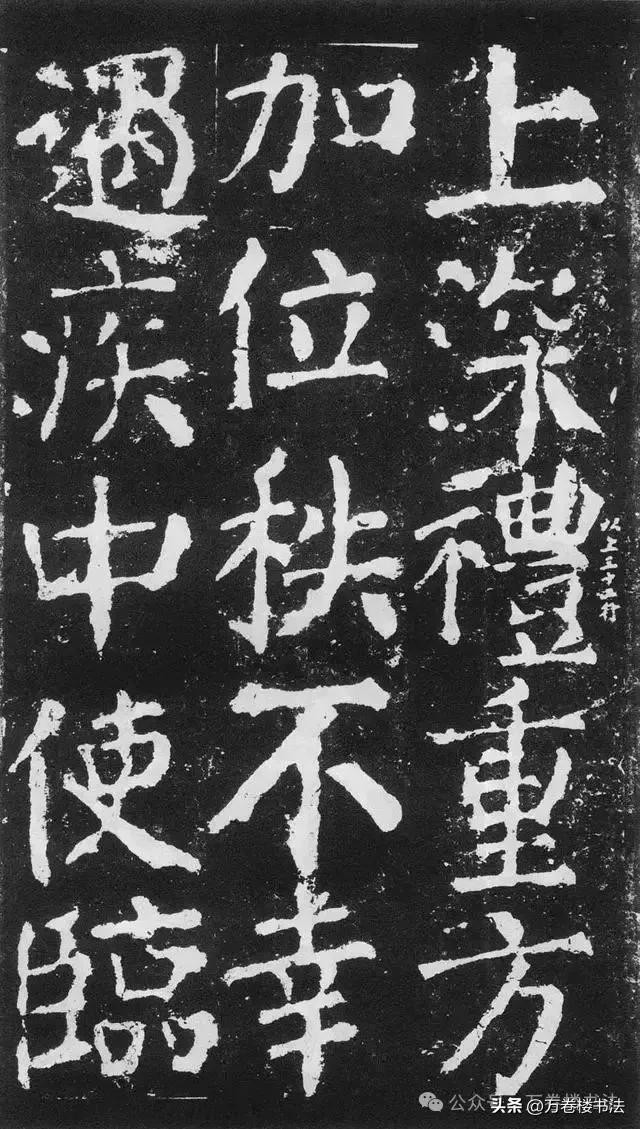 上深禮重方
以上三十五行
加位秩不幸
遇疾中使臨
公众号 万卷楼书法
头条 @万卷楼书法